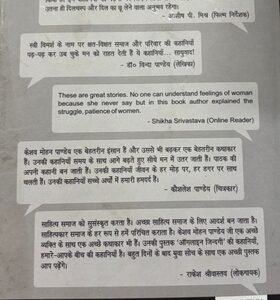 उतना ही दिलचस्प और दिल को छू लेने वाला अनुभव रहेगा।
- आशीष पी. मिश्र (फिल्म निर्देशक)
स्त्री विमर्श के नाम पर क्षत-विक्षत समाज और परिवार की कहानियाँ
पढ़-पढ़ कर उब चुके मन को राहत देती हैं ये कहानियाँ... साधुवाद!
- डॉ० विन्दा पाण्डेय (लेखिका)
These are great stories. No one can understand feelings of woman
because she never say but in this book author explained the
struggle, patience of women.
- Shikha Srivastava (Online Reader)
केशव मोहन पाण्डेय एक बेहतरीन इंसान हैं और उससे भी बढ़कर एक बेहतरीन कथाकार
हैं। उनकी कहानियाँ समय के साथ आगे बढ़ते हुए सीधे मन में उतर जाती हैं। पाठक की
अपनी कहानी बन जाती हैं। उनकी कहानियाँ जीवन के हर मोड़ पर, हर डगर पर साथ
चलती हैं। उनकी कहानियाँ सच्चे अर्थों में हमारी हमदर्द हैं।
- कौशलेश पाण्डेय (चित्रकार)
साहित्य समाज को सुसंस्कृत करता है। अच्छा साहित्य समाज के लिए आदर्श बन जाता है।
साहित्यकार समाज के हर रूप से हमें परिचित कराता है। केशव मोहन पाण्डेय जी एक अच्छे
व्यक्ति के साथ एक अच्छे कथाकार भी हैं। उनकी पुस्तक 'ऑनलाइन जिन्दगी' की कहानियाँ,
हमारे-आपके बीच की कहानियाँ हैं। बहुत दिनों के बाद युवा सोच के साथ एक अच्छी पुस्तक
आप पढ़ेंगे।
- राकेश श्रीवास्तव (लोकगायक)